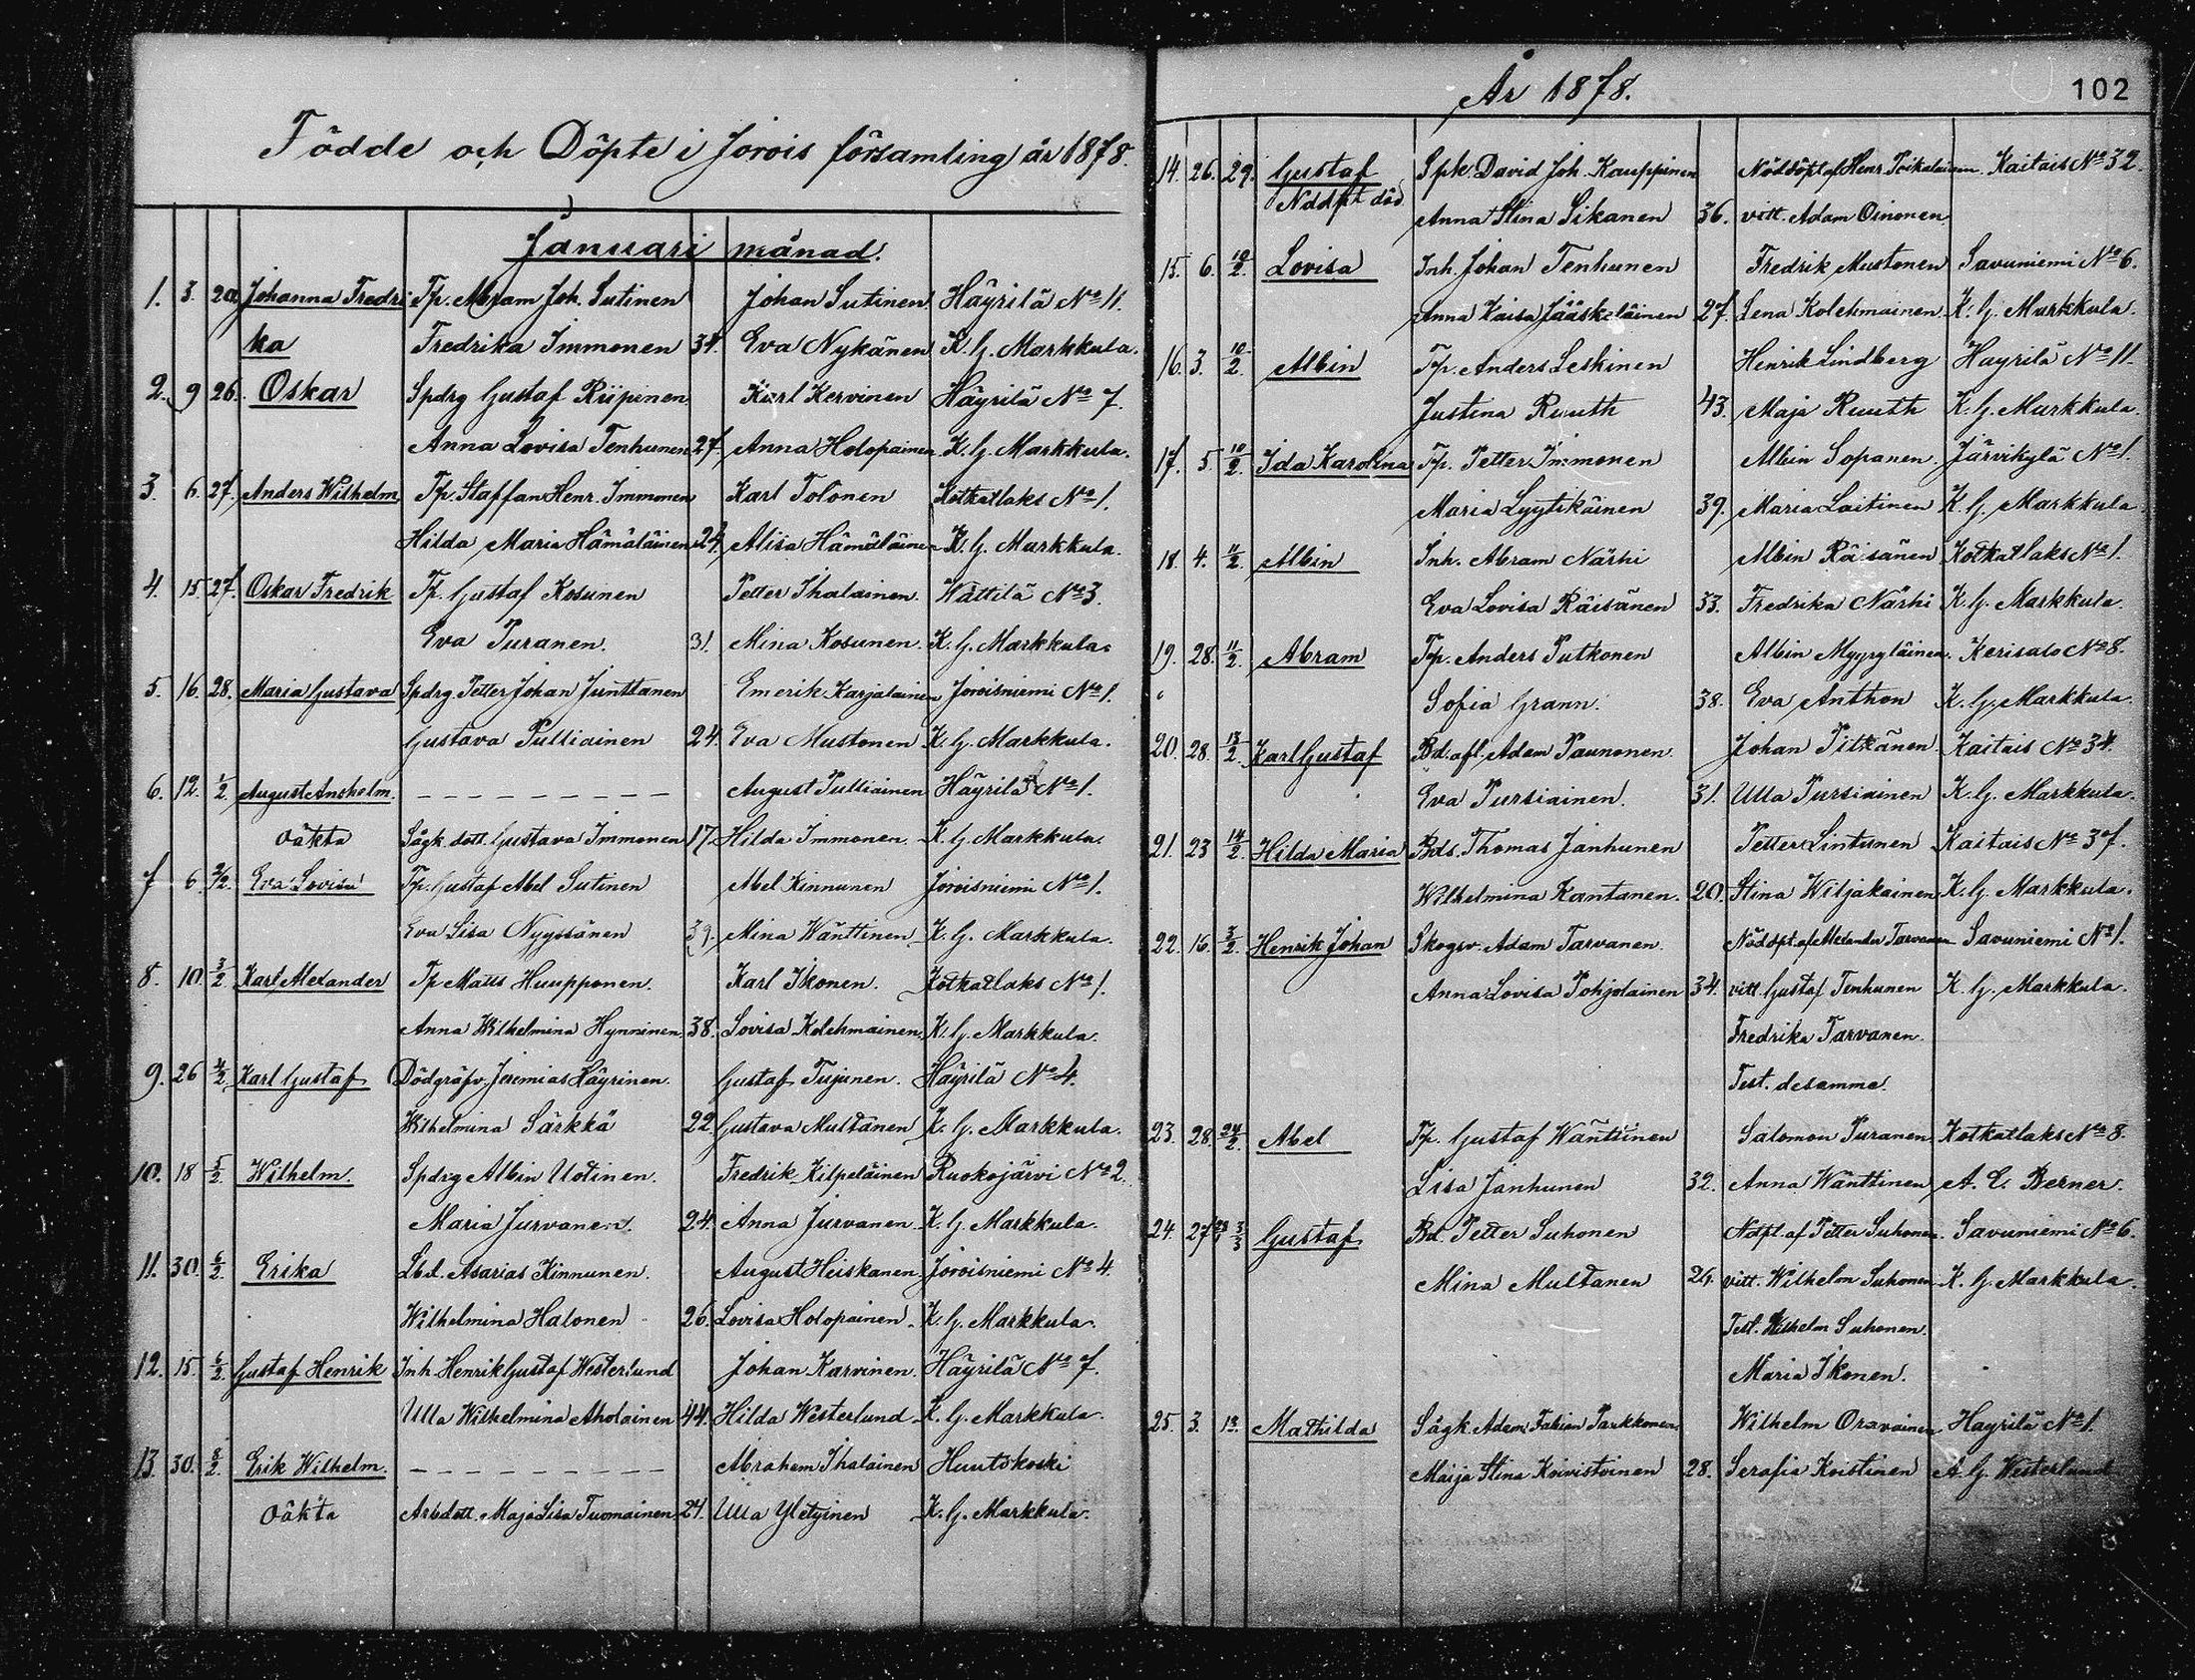 Födde och Döpte i Jorois församling år 1878.
Januari månad.
1. 3. 20. Johanna Fredri Tp. Abram Joh. Sutinen Johan Sutinen Häyrilä No 11.
ka Fredrika Immonen 34. Eva Nykänen K. G. Markkula.
2. 9 26. Oskar Spdrg Gustaf Riipinen Karl Kervinen Häyrilä No 7.
Anna Lovisa Tenhunen 27. Anna Holopainen K. G. Markkula.
3. 6. 27. Anders Wilhelm Tp. Staffan Henr. Immonen Karl Tolonen Kotkatlaks No 1.
Hilda Maria Hämäläinen 24. Alisa Hämäläinen K. G. Markkula.
4. 15. 27. Oskar Fredrik Tp. Gustaf Kosunen Petter Ihalainen Wättilä No 3.
Eva Puranen. 31. Mina Kosunen. K. G. Markkula.
5. 16. 28. Maria Gustava Spdrg. Petter Johan Junttanen Emerik Karjalainen Joroisniemi No 1.
Gustava Pulliainen 24. Eva Mustonen K. G. Markkula.
6. 12. 1/2. August Anshelm. – – – – – – – – – August Pulliainen Häyrilä No 1.
oäkta Sågk. dott. Gustava Immonen 17. Hilda Immonen. K. G. Markkula.
7 6. 2/2. Eva Lovisa Tp. Gustaf Abel Sutinen Abel Kinnunen Joroisniemi No 1.
Eva Lisa Nyyssönen 39. Mina Wänttinen K. G. Markkula.
8. 10. 3/2 Karl Alexander Tp Matts Huupponen. Karl Ikonen. Kotkatlaks No 1.
Anna Wilhelmina Hynninen 38. Lovisa Kolehmainen K. G. Markkula.
9. 26 4/2 Karl Gustaf Dödgräfv. Jeremias Häyrinen. Gustaf Tujunen. Häyrilä No 4.
Wilhelmina Särkkä 22. Gustava Multanen K. G. Markkula.
10. 18 5/2. Wilhelm. Spdrg Albin Uotinen. Fredrik Kilpeläinen Ruokojärvi No 2.
Maria Jurvanen. 24. Anna Jurvanen K. G. Markkula.
11. 30. 6/2. Erika Lbd. Asarias Kinnunen. August Heiskanen. Joroisniemi No 4.
Wilhelmina Halonen 26. Lovisa Holopainen K. G. Markkula.
12. 15. 6/2. Gustaf Henrik Inh. Henrik Gustaf Westerlund Johan Karvinen. Häyrilä No 7.
Ulla Wilhelmina Aholainen 44. Hilda Westerlund K. G. Markkula.
13. 30. 8/2. Erik Wilhelm. – – – – – – – – – Abraham Ihalainen Huutokoski
Oäkta Arbdott. Maja Lisa Tuomainen 24. Ulla Yletyinen K. G. Markkula.
År 1878.
102
14. 26. 29. Gustaf Spk. David Joh. Kauppinen Nöddöpt af Henr. Poikolainen Kaitais No 32.
Nddpt död Anna Stina Sikanen 36. vitt. Adam Oinonen
15. 6. 10/2. Lovisa Inh. Johan Tenhunen Fredrik Mustonen Savuniemi No 6.
Anna Kaisa Jääskeläinen 27. Lena Kolehmainen. K. G. Markkula.
16. 3. 10/2. Albin Tp. Anders Leskinen Henrik Lindberg Hayrilä No 11.
Justina Ruuth 43. Maja Ruuth K. G. Markkula.
17. 5. 10/2. Ida Karolina Tp. Petter Immonen Albin Sopanen. Järvikylä No 1.
Maria Lyytikäinen 39. Maria Laitinen K. G. Markkula
18. 4. 11/2. Albin Inh. Abram Närhi Albin Räisänen Kotkatlaks No 1.
Eva Lovisa Räisänen 33. Fredrika Närhi K. G. Markkula.
19. 28. 11/2. Abram Tp. Anders Putkonen Albin Myyryläinen. Kerisalo No 8.
Sofia Grann. 38. Eva Anthon K. G. Markkula.
20. 28. 13/2. Karl Gustaf Bd. afl. Adam Paunonen. Johan Pitkänen Kaitais No 34.
Eva Pursiainen. 31. Ulla Pursiainen K. G. Markkula.
21. 23 14/2. Hilda Maria Bds. Thomas Janhunen Petter Lintunen Kaitais No 37.
Wilhelmina Kantanen. 20. Stina Wiljakainen K. G. Markkula.
22. 16. 3/2. Henrik Johan Skogsv. Adam Tarvanen. Nöddpt. af Alexander Tarvanen Savuniemi No 1.
Anna Lovisa Pohjolainen 34. vitt. Gustaf Tenhunen K. G. Markkula.
Fredrika Tarvanen.
Test. desamma.
23. 28. 24/2. Abel Tp. Gustaf Wänttinen Salomon Puranen Kotkatlaks No 8.
Lisa Janhunen 32. Anna Wänttinen A. E. Berner.
24. 27 3/3 Gustaf Bd. Petter Suhonen Nddpt. af Petter Suhonen. Savuniemi No 6.
Mina Multanen 24. vitt. Wilhelm Suhonen K. G. Markkula.
Test. Wilhelm Suhonen.
Maria Ikonen.
25. 3. 13. Mathilda Sågk. Adam Fabian Parkkonen Wilhelm Oravainen Hayrilä No 1.
Maija Stina Koivistoinen 28. Serafia Koistinen A. G. Westerlund